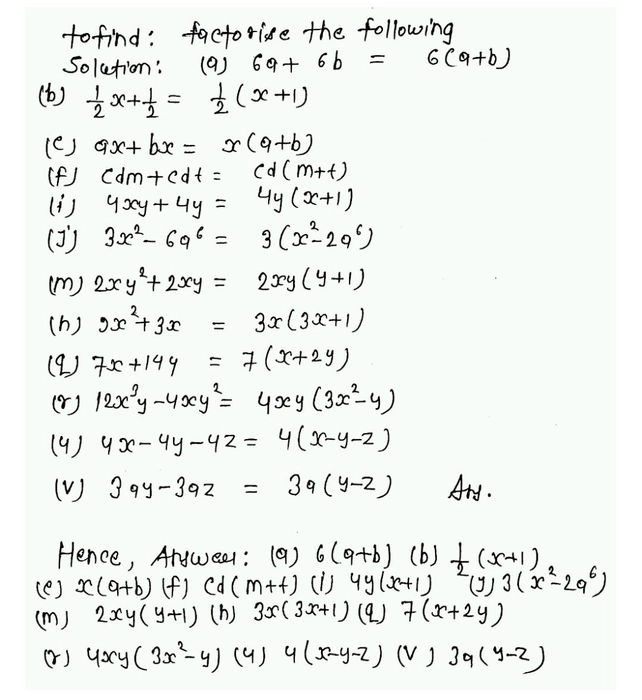 to find: factorise the following
Solution: (a) 6a + 6b = 6(a+b)
(b) ½x + ½ = ½(x+1)
(e) ax + bx = x(a+b)
(f) cdm + cdt = cd(m+t)
(i) 4xy + 4y = 4y(x+1)
(j) 3x² - 6a⁶ = 3(x²-2a⁶)
(m) 2xy² + 2xy = 2xy(y+1)
(n) 9x² + 3x = 3x(3x+1)
(q) 7x + 14y = 7(x+2y)
(r) 12x³y - 4xy² = 4xy(3x²-y)
(u) 4x - 4y - 4z = 4(x-y-z)
(v) 3ay - 3az = 3a(y-z) Ans.
Hence, Answer: (a) 6(a+b) (b) ½(x+1)
(e) x(a+b) (f) cd(m+t) (i) 4y(x+1) (j) 3(x²-2a⁶)
(m) 2xy(y+1) (n) 3x(3x+1) (q) 7(x+2y)
(r) 4xy(3x²-y) (u) 4(x-y-z) (v) 3a(y-z)